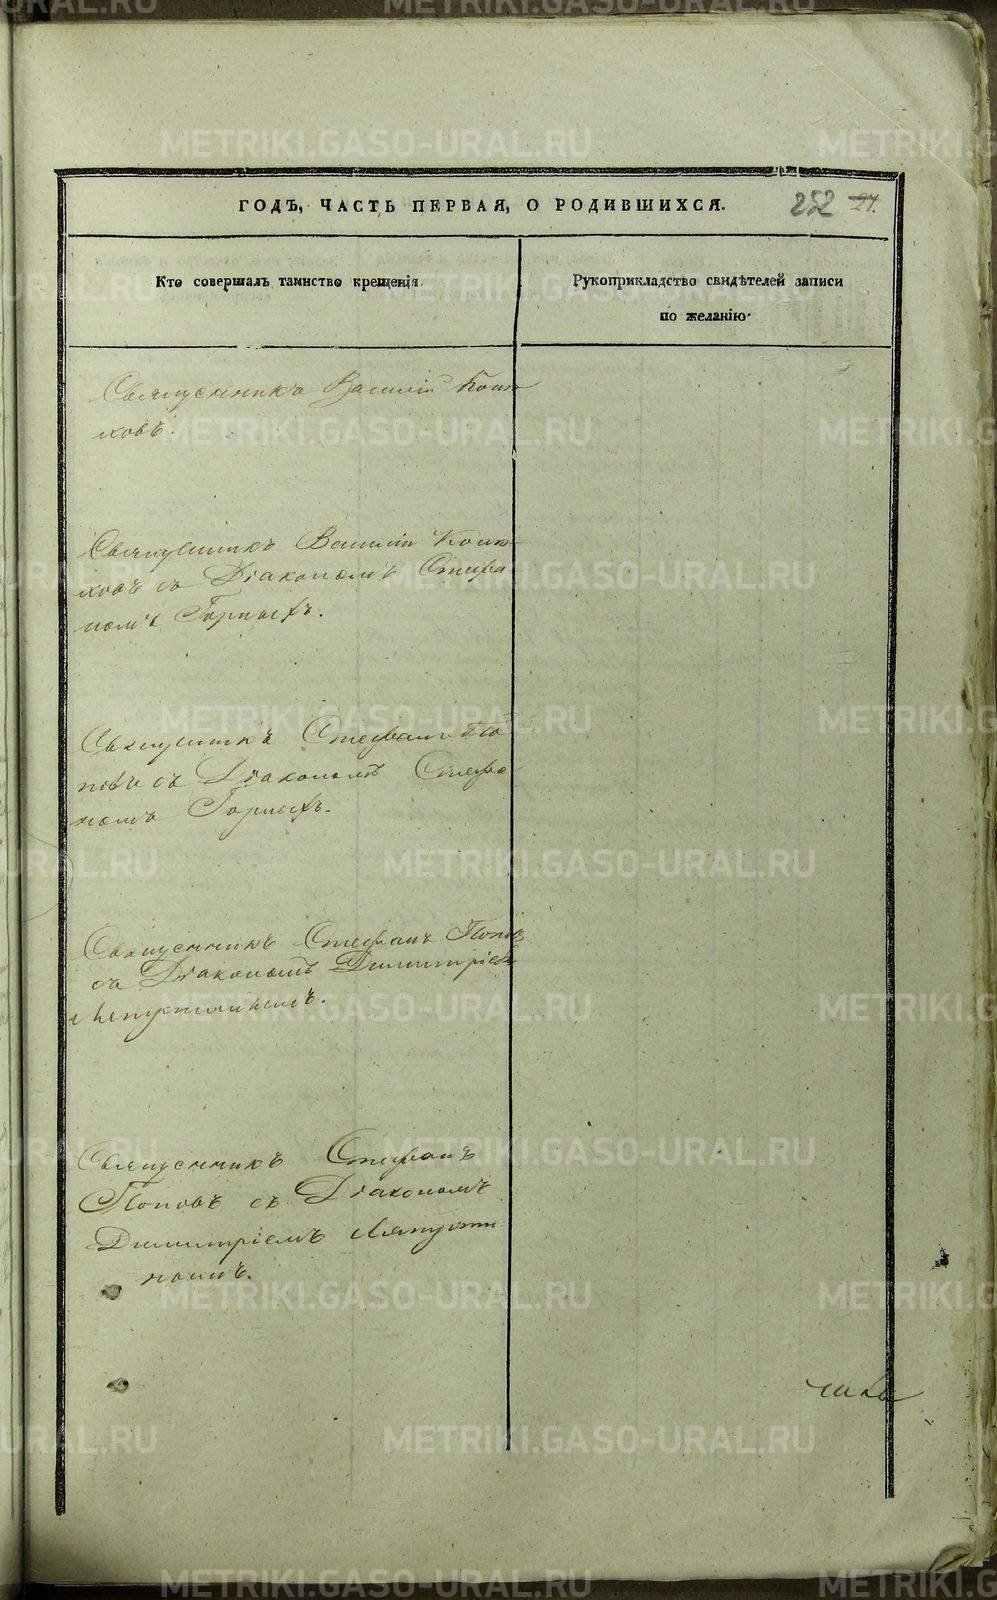 METRIKI.GASO-URAL.RU
ГОДЪ, ЧАСТЬ ПЕРВАЯ, О РОДИВШИХСЯ.
252 21.
Кто совершалъ таинство крещенія.
Рукоприкладство свидѣтелей записи
по желанію.
Священникъ Василій
ковъ.
Священникъ Василій
ковъ съ Діакономъ Стефа
номъ Горныхъ.
Священникъ Стефанъ По
повъ съ Діакономъ Стефа
номъ Горныхъ.
Священникъ Стефанъ Поповъ
съ Діакономъ Димитріемъ
Ляпустинымъ.
Священникъ Стефанъ
Поповъ съ Діакономъ
Димитріемъ Ляпусти
нымъ.